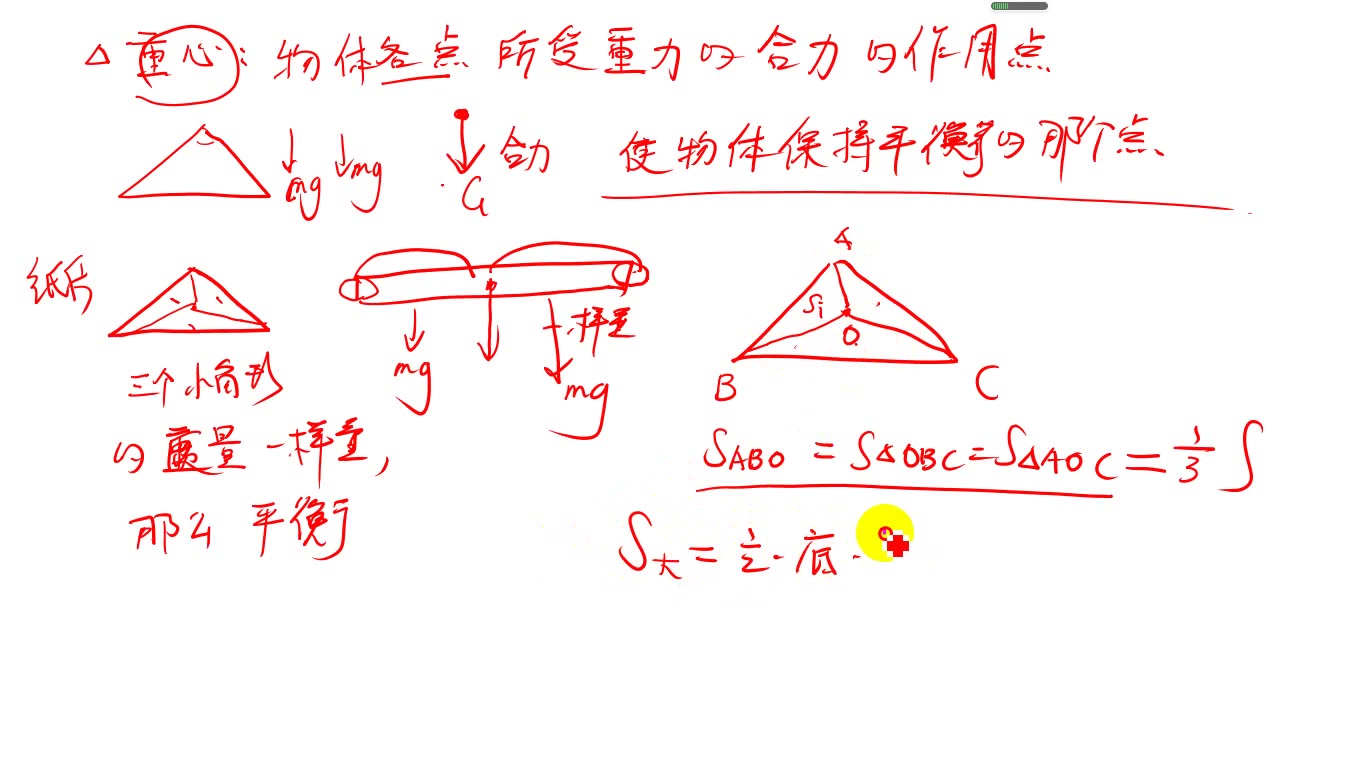 △ 重心: 物体各点所受重力的合力的作用点
mg mg G 合力 使物体保持平衡的那个点、
纸片
mg 一样重 mg
三个小角形
的重量一样重,
那么 平衡
A
S₁
O
B C
S_ABO = S△OBC = S△AOC = 1/3 S
S大 = 1/2 · 底 ·